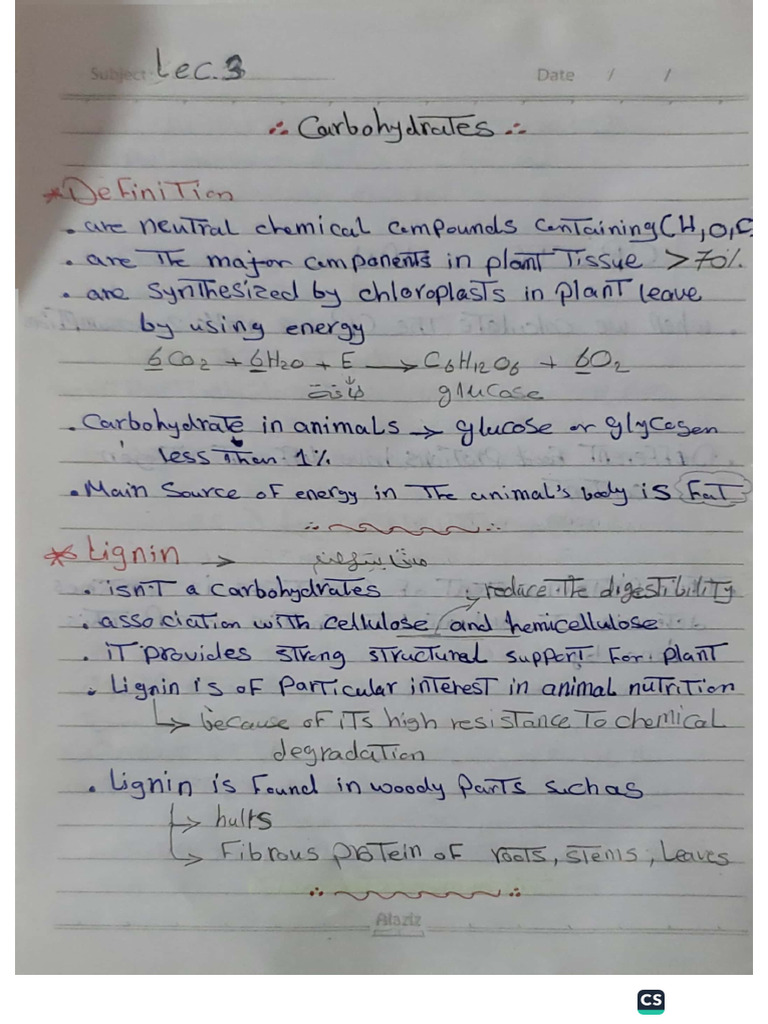 Subject: Lec. 3 Date / /
∴ Carbohydrates ∴
*Definition
• are neutral chemical compounds containing (H, O, C
• are the major components in plant tissue > 70%
• are synthesized by chloroplasts in plant leave
by using energy
6CO2 + 6H2O + E → C6H12O6 + 6O2
طاقة glucose
• Carbohydrate in animals → glucose or glycogen
less than 1%
• Main source of energy in the animal's body is Fat
* Lignin →
• isn't a carbohydrates reduce the digestibility
• association with cellulose and hemicellulose
• it provides strong structural support for plant
• Lignin is of particular interest in animal nutrition
↳ because of its high resistance to chemical
degradation
• Lignin is found in woody parts such as
↳ hulls
↳ Fibrous protein of roots, stems, leaves
Alaziz
CS